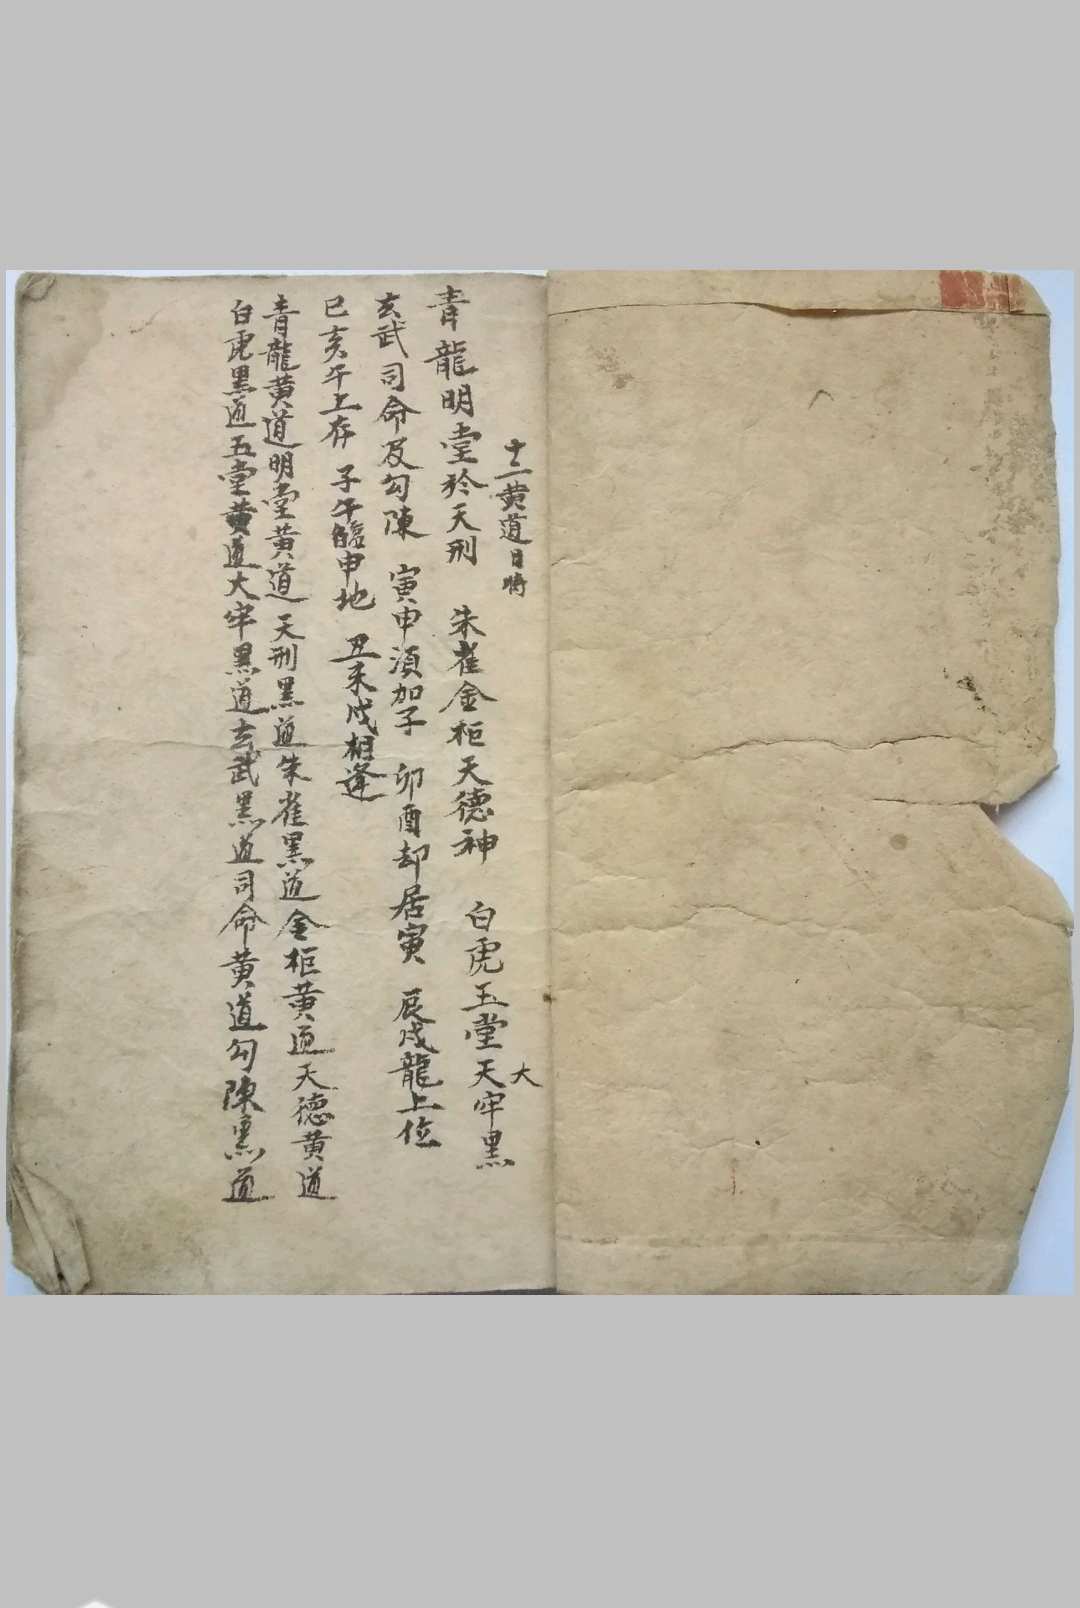 十二黄道日時
青龍明堂於天刑 朱雀金柜天德神 白虎玉堂天牢黑
大
玄武司命及勾陳 寅申須加子 卯酉却居寅 辰戌龍上位
巳亥午上存 子午臨申地 丑未戌相逢
青龍黄道明堂黄道天刑黑道朱雀黑道金柜黄道天德黄道
白虎黑道五堂黄道大牢黑道玄武黑道司命黄道勾陳黑道